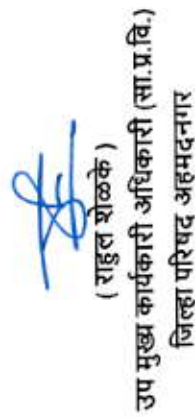 ( राहुल शेळके )
उप मुख्य कार्यकारी अधिकारी (सा.प्र.वि.)
जिल्हा परिषद अहमदनगर